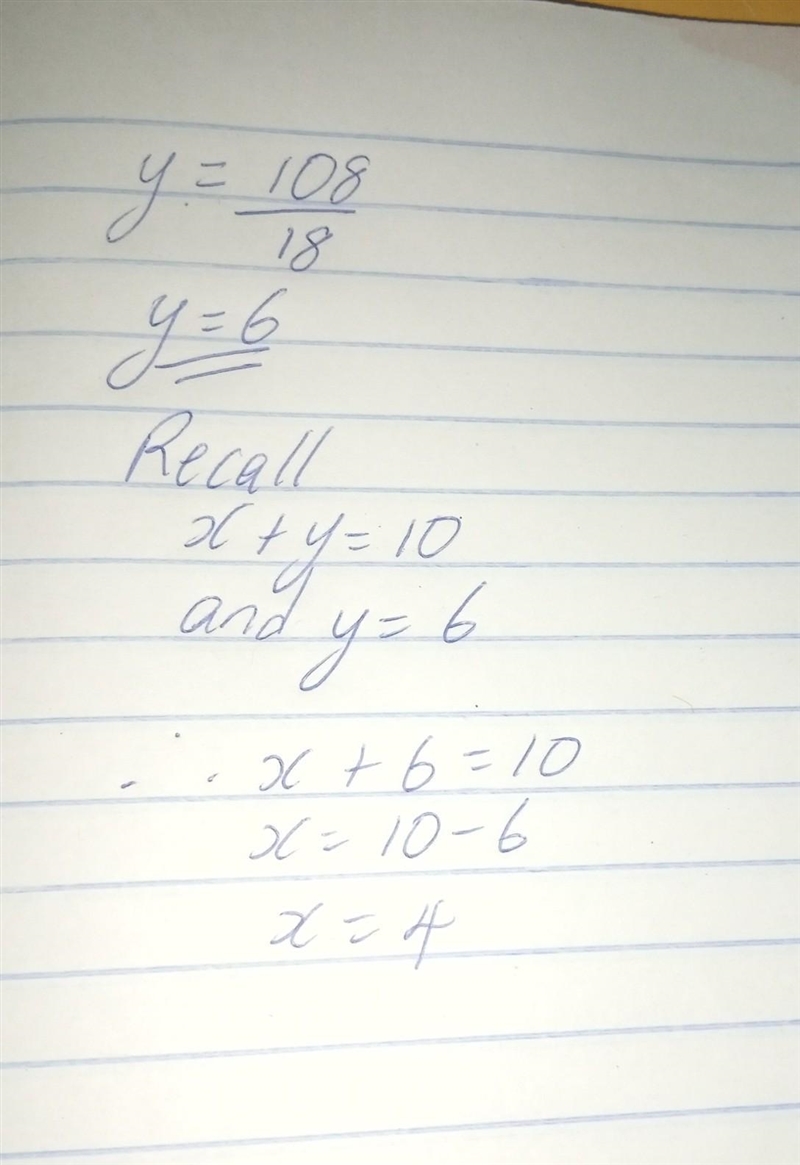 y = 108/18
y = 6
Recall
x + y = 10
and y = 6
∴ x + 6 = 10
x = 10 - 6
x = 4